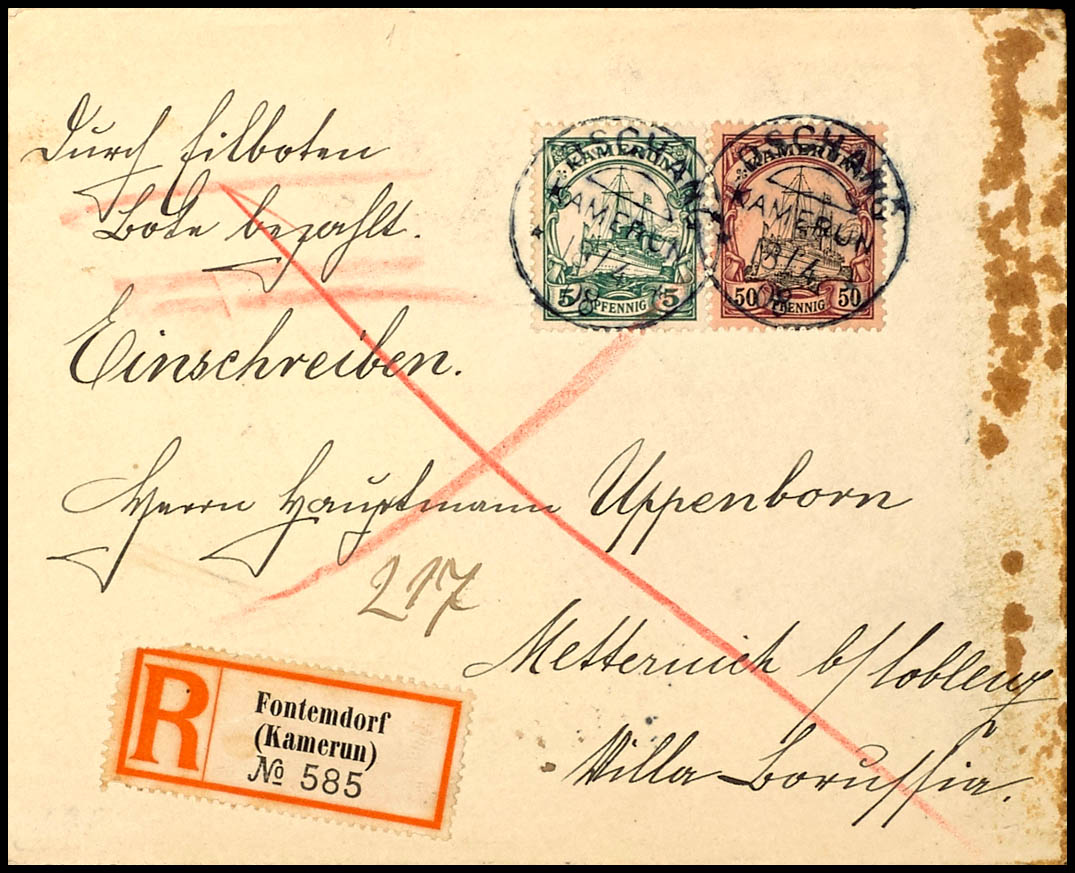 Durch Eilboten
Bote bezahlt.
Einschreiben.
KAMERUN
5 PFENNIG 5
DSCHANG
KAMERUN
13/4
08
KAMERUN
50 PFENNIG 50
DSCHANG
KAMERUN
13/4
08
Herrn Hauptmann Uppenborn
217
Metternich b/Coblenz
Villa Borussia.
R
Fontemdorf
(Kamerun)
№ 585